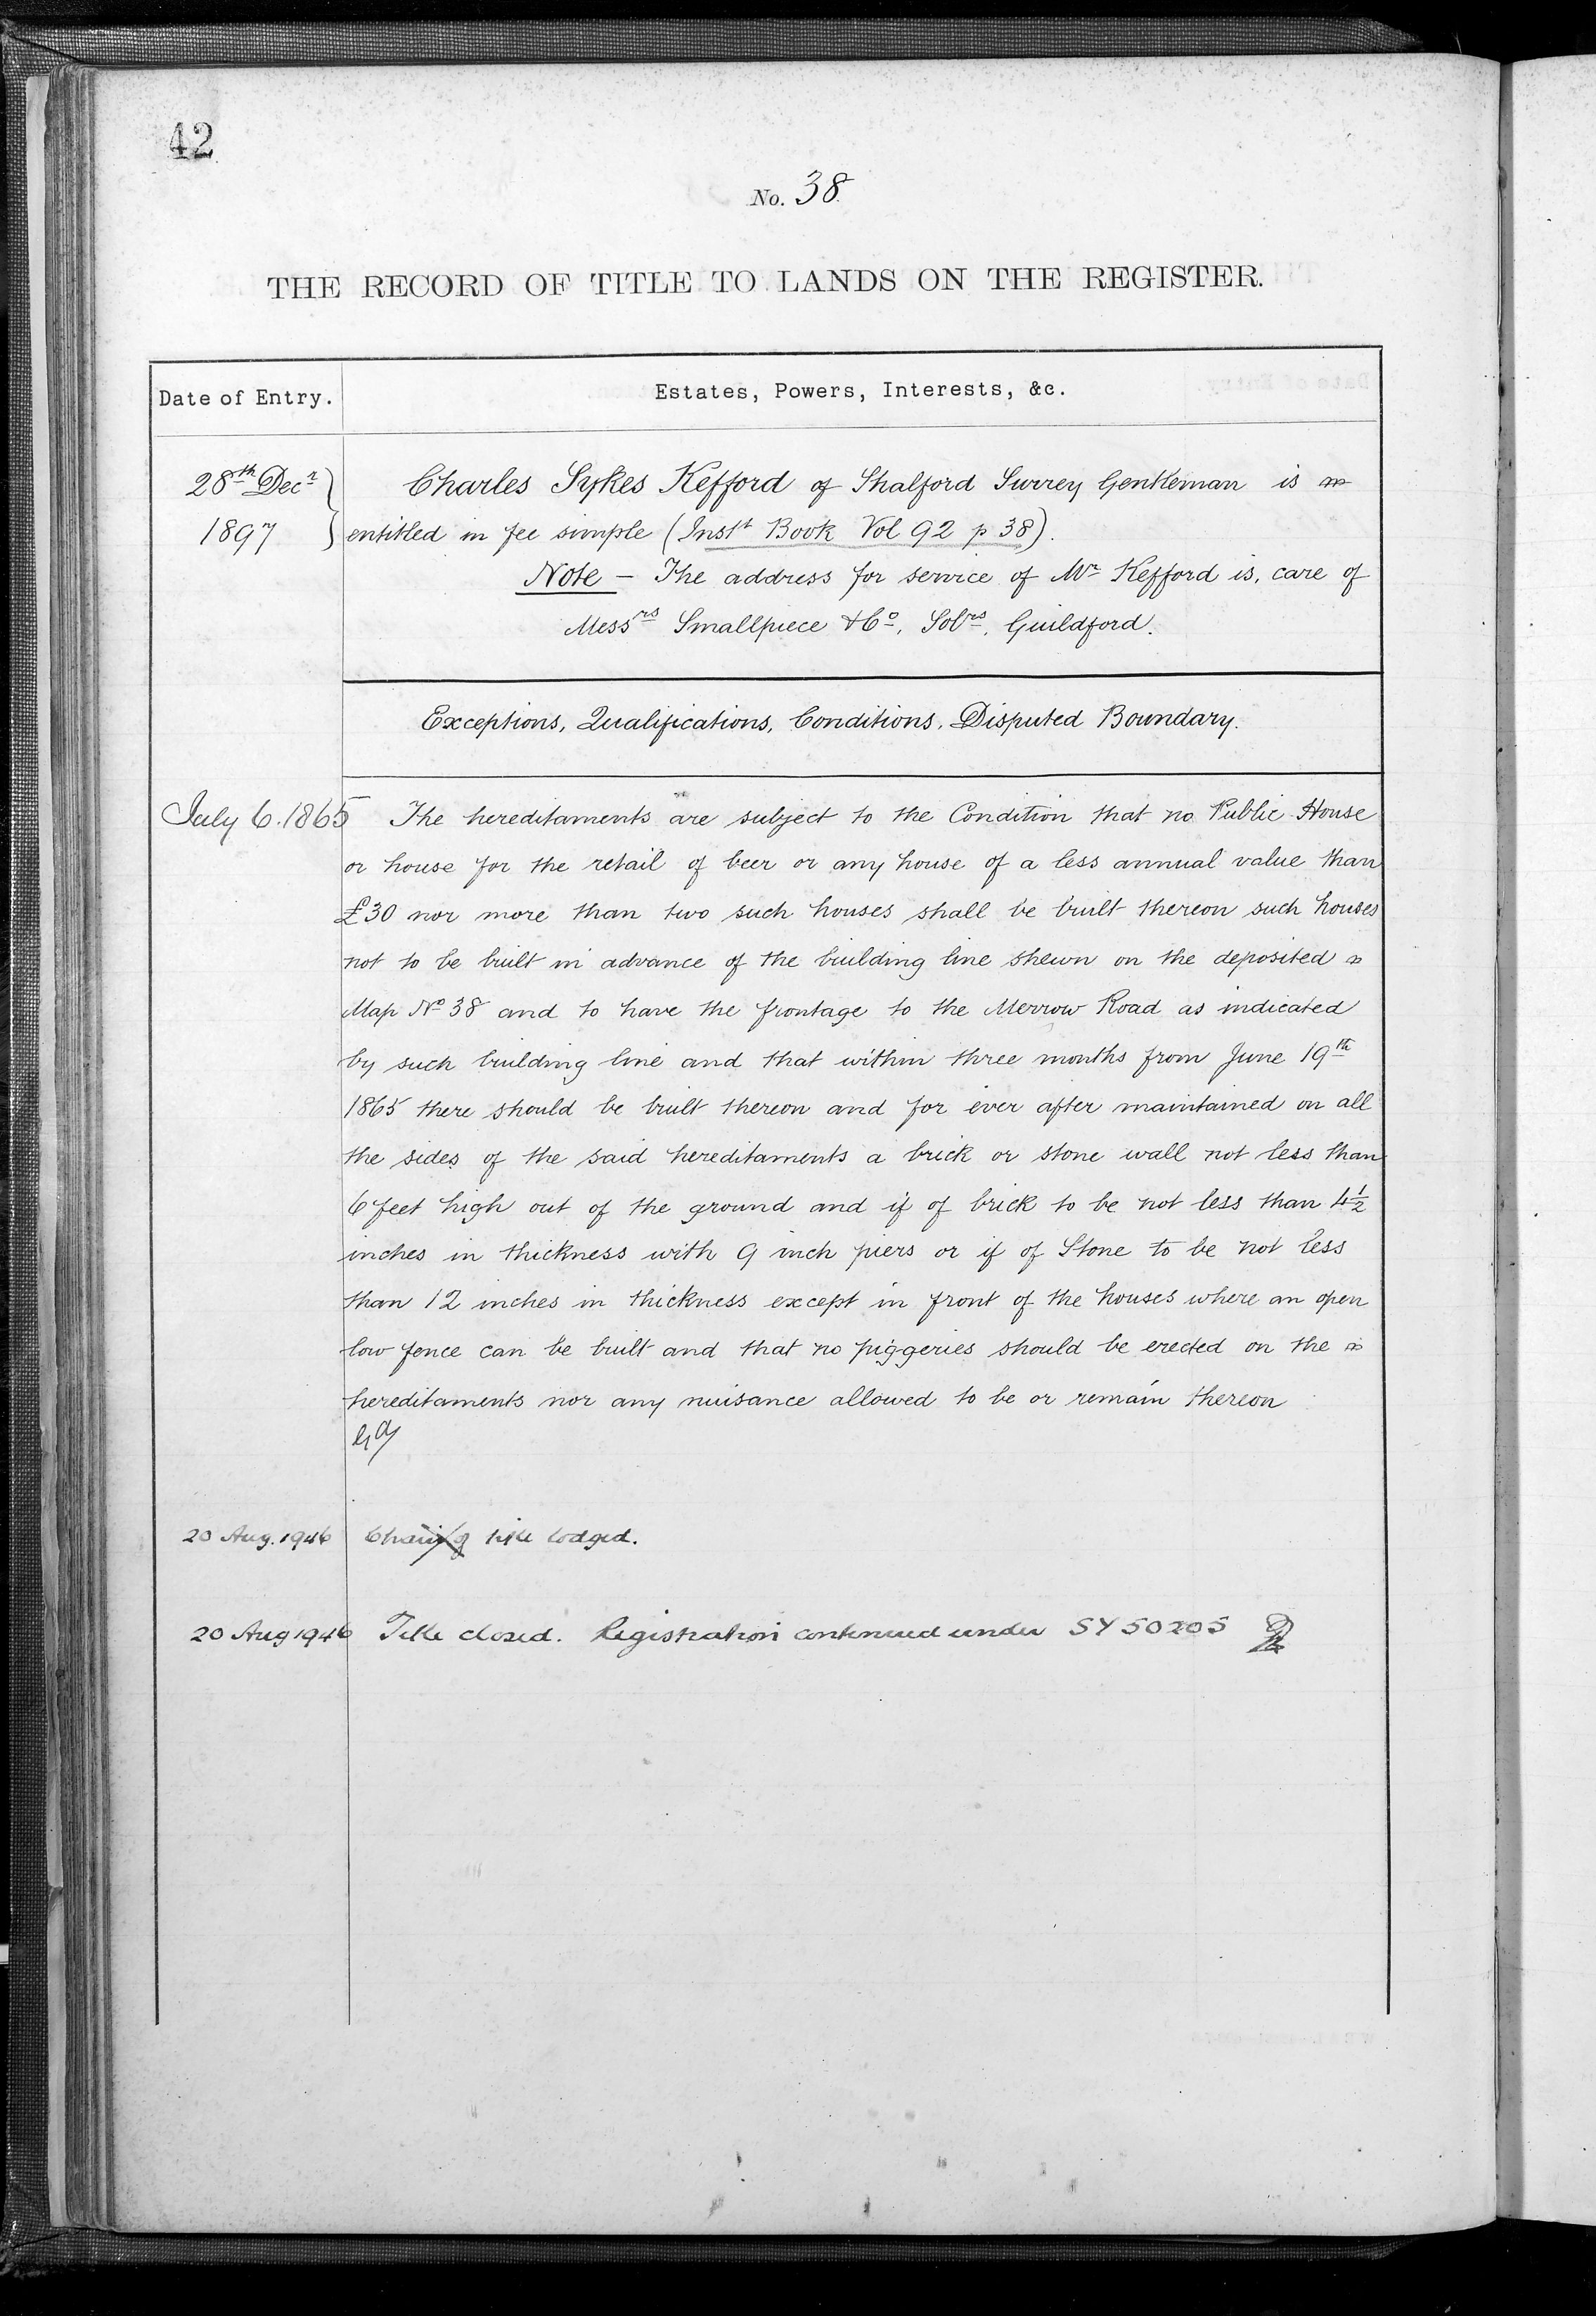 42
No. 38
THE RECORD OF TITLE TO LANDS ON THE REGISTER.
Date of Entry.
Estates, Powers, Interests, &c.
28th Decr
1897
Charles Sykes Kefford of Shalford Surrey Gentleman is
entitled in fee simple (Instt Book Vol 92 p 38).
Note - The address for service of Mr Kefford is, care of
Messrs Smallpiece & Co, Solrs, Guildford.
Exceptions, Qualifications, Conditions, Disputed Boundary.
July 6. 1865 The hereditaments are subject to the Condition that no Public House
or house for the retail of beer or any house of a less annual value than
£30 nor more than two such houses shall be built thereon such houses
not to be built in advance of the building line shewn on the deposited
Map No 38 and to have the frontage to the Merrow Road as indicated
by such building line and that within three months from June 19th
1865 there should be built thereon and for ever after maintained on all
the sides of the said hereditaments a brick or stone wall not less than
6 feet high out of the ground and if of brick to be not less than 4½
inches in thickness with 9 inch piers or if of Stone to be not less
than 12 inches in thickness except in front of the houses where an open
low fence can be built and that no piggeries should be erected on the
hereditaments nor any nuisance allowed to be or remain thereon
20 Aug. 1946 title lodged.
20 Aug 1946 Title closed. Registration continued under SY 50205